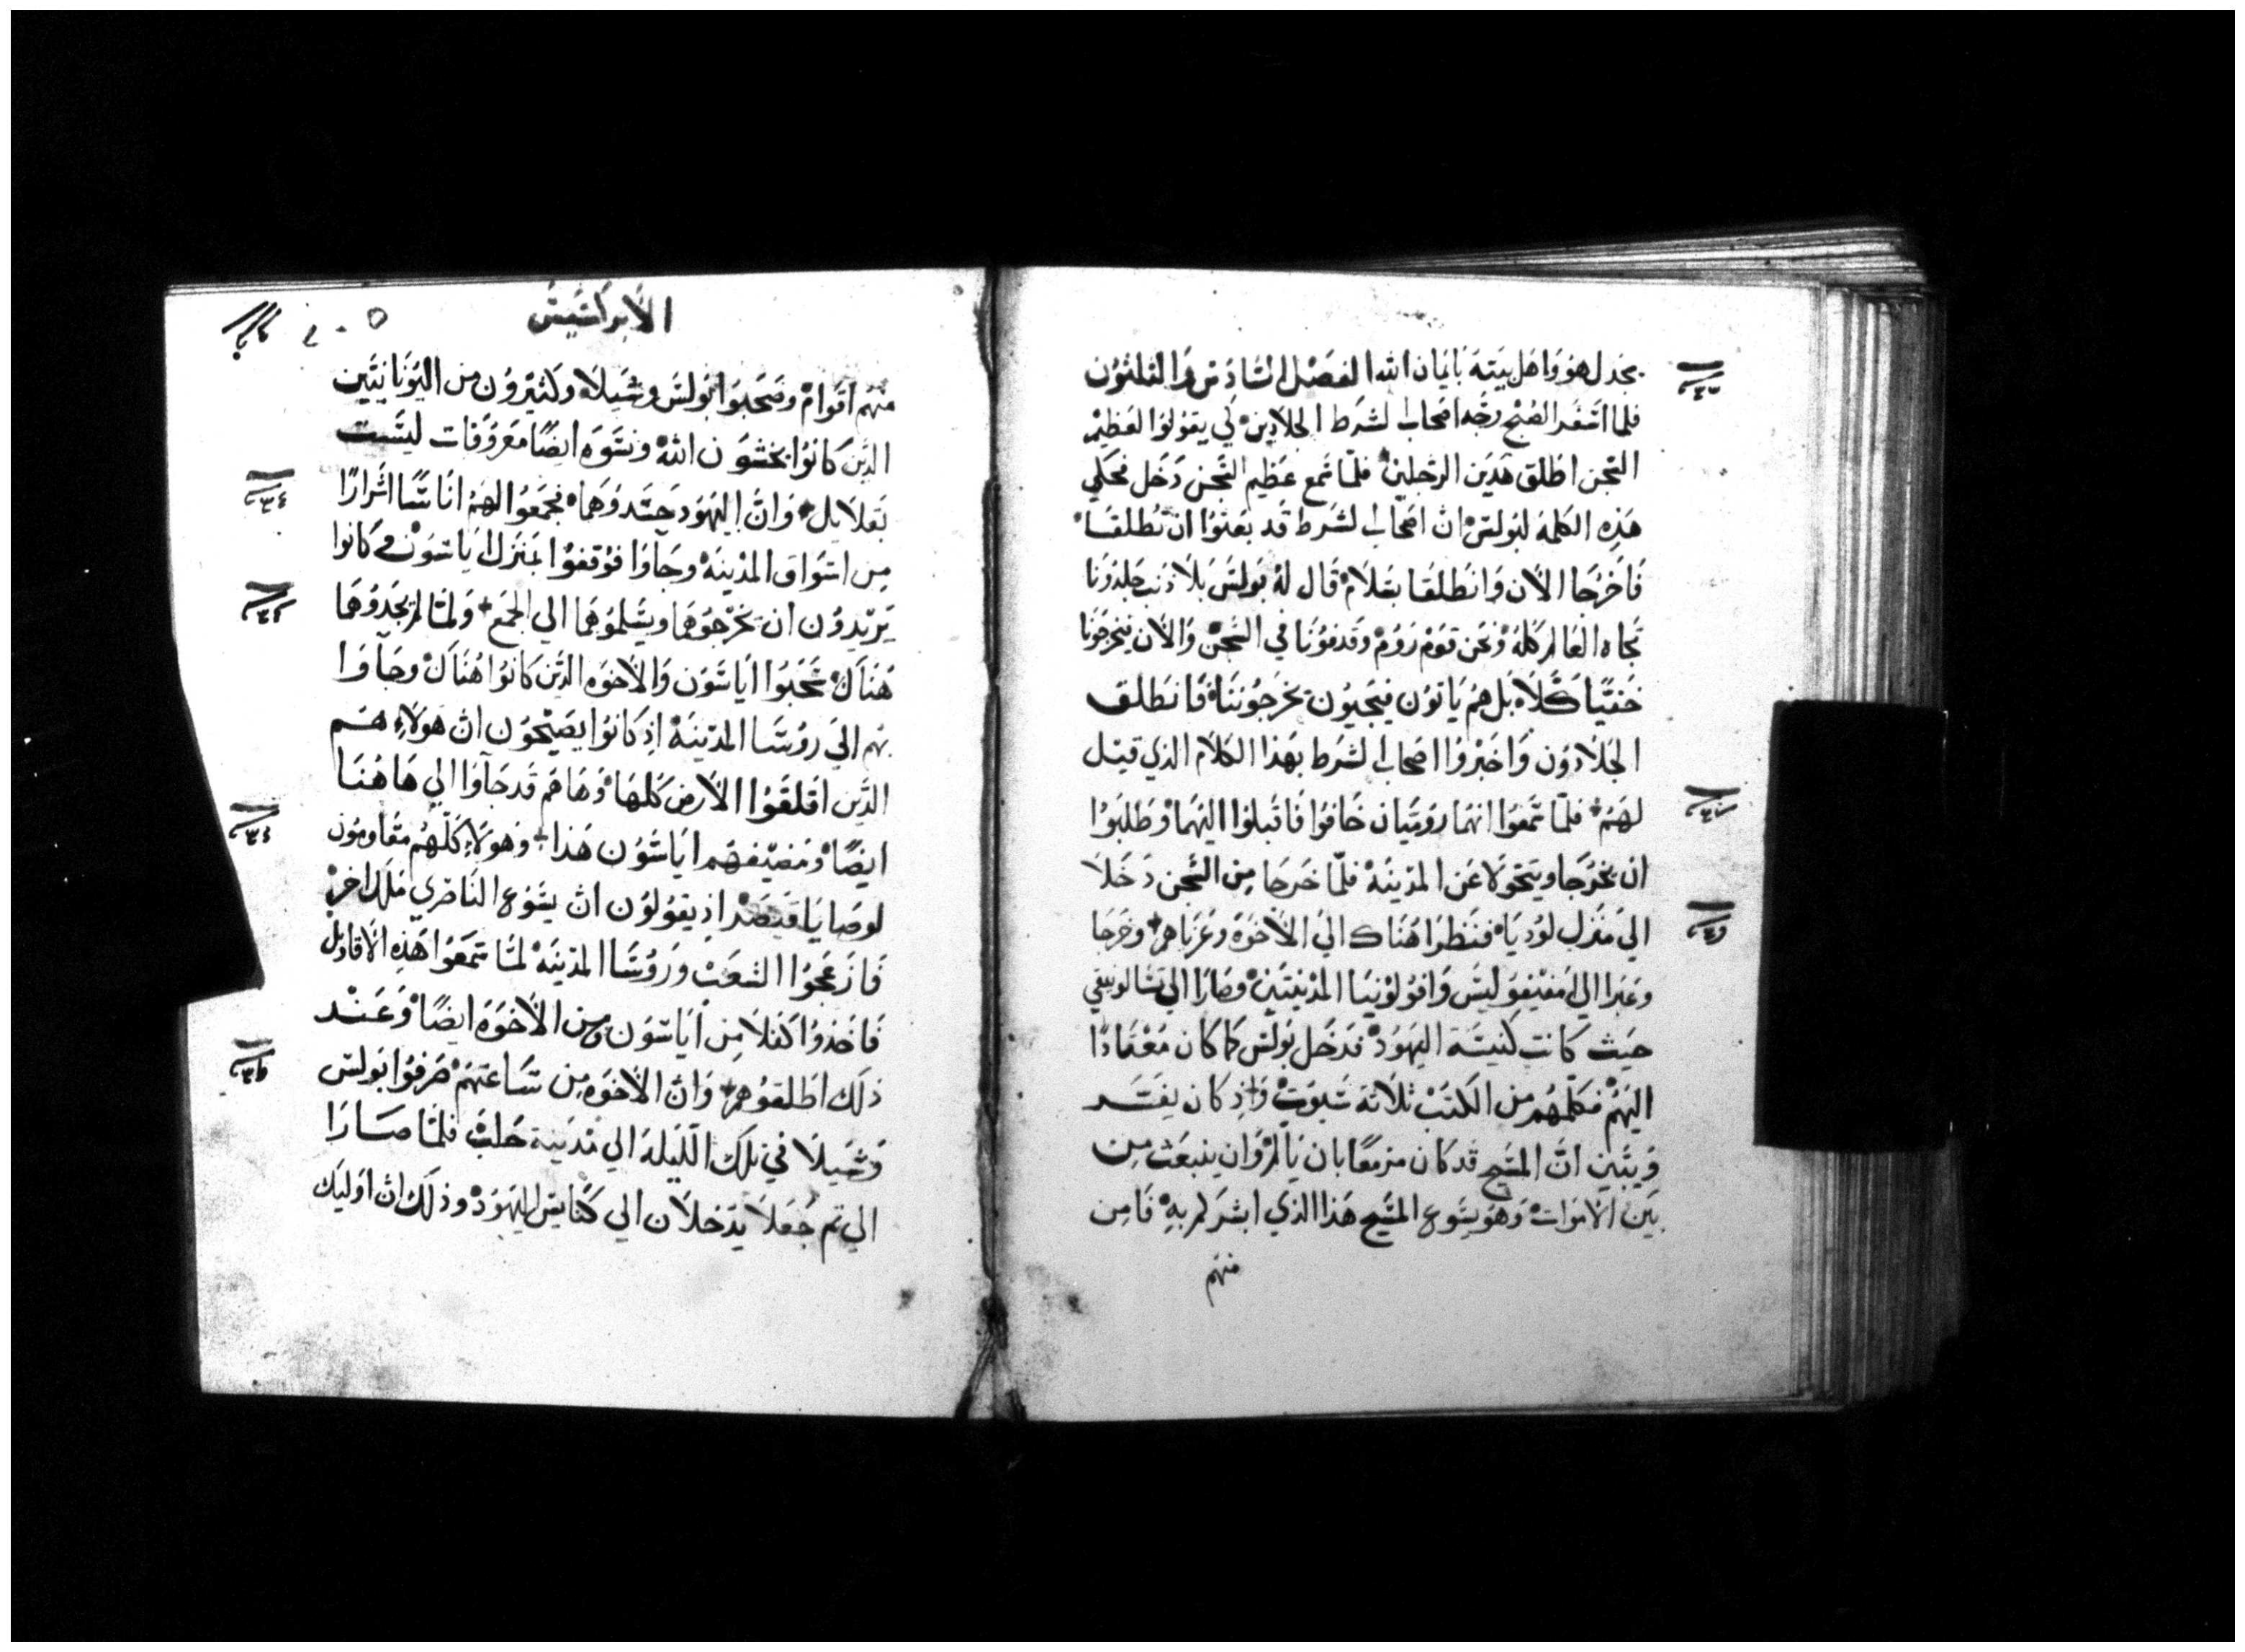 يجدل هو واهل بيته بايمان الله الفصل السادس والثلثون
فلما اسفر الصبح وجه اصحاب الشرط الجلادين لكي يقولوا لعظيم
السجن اطلق هدين الرجلين فلما سمع عظيم السجن دخل فحكي
هذه الكلمه لبولس ان اصحاب الشرط قد بعثوا ان تطلقا
فاخرجا الان وانطلقا بسلام قال له بولس بلا ذنب جلدونا
تجاه العالم كله ونحن قوم روم وقدفونا في السجن والان يخرجونا
خفيًا كلا بل هم ياتون فيجيون يخرجوننا فانطلق
الجلادون واخبروا اصحاب الشرط بهذا الكلام الذي قيل
لهم فلما سمعوا انهما روميان خافوا فاقبلوا اليهما وطلبوا
ان يخرجا ويتحولا عن المدينه فلما خرجا من السجن دخلا
الي منزل لوديا فنظرا هناك الي الاخوه وعزياهم وخرجا
وعبرا الي امفيفوليس وافولونيا المدينتين وصارا الي تسالونيقي
حيث كانت كنيسة اليهود فدخل بولس كما كان معتادًا
اليهم فكلمهم من الكتب ثلاثة سبوت واذ كان يفسر
ويبين ان المسيح قد كان مزمعًا بان يالم وان ينبعث من
بين الاموات وهو يسوع المسيح هذا الذي ابشركم به فامن
منهم
الابراكسيس
منهم اقوام وصحبوا بولس وشيلا وكثيرون من اليونانيين
الذين كانوا يخشون الله ونسوه ايضًا معروفات ليست
بقلايل وان اليهود حسدوهما فجمعوا لهم اناسًا اشرارًا
من اسواق المدينه وجآوا فوقفوا بمنزل اياسون وكانوا
يريدون ان يخرجوهما ويسلموهما الي الجمع ولما لم يجدوهما
هناك سحبوا اياسون والاخوه الذين كانوا هناك وجآوا
بهم الي روسا المدينه اذ كانوا يصيحون ان هولاء هم
الذين اقلقوا الارض كلها وها هم قد جآوا الي هاهنا
ايضًا ومضيفهم اياسون هذا وهولاء كلهم مقاومون
لوصايا قيصر اذ يقولون ان يسوع الناصري ملك اخر
فازعجوا الشعب وروسا المدينه لما سمعوا هذه الاقاويل
فاخذوا كفلا من اياسون ومن الاخوه ايضًا وعند
ذلك اطلقوهم وان الاخوه من ساعتهم صرفوا بولس
وشيلا في تلك الليله الي مدينة حلب فلما صارا
الي ثم جعلا يدخلان الي كنايس اليهود وذلك ان اوليك